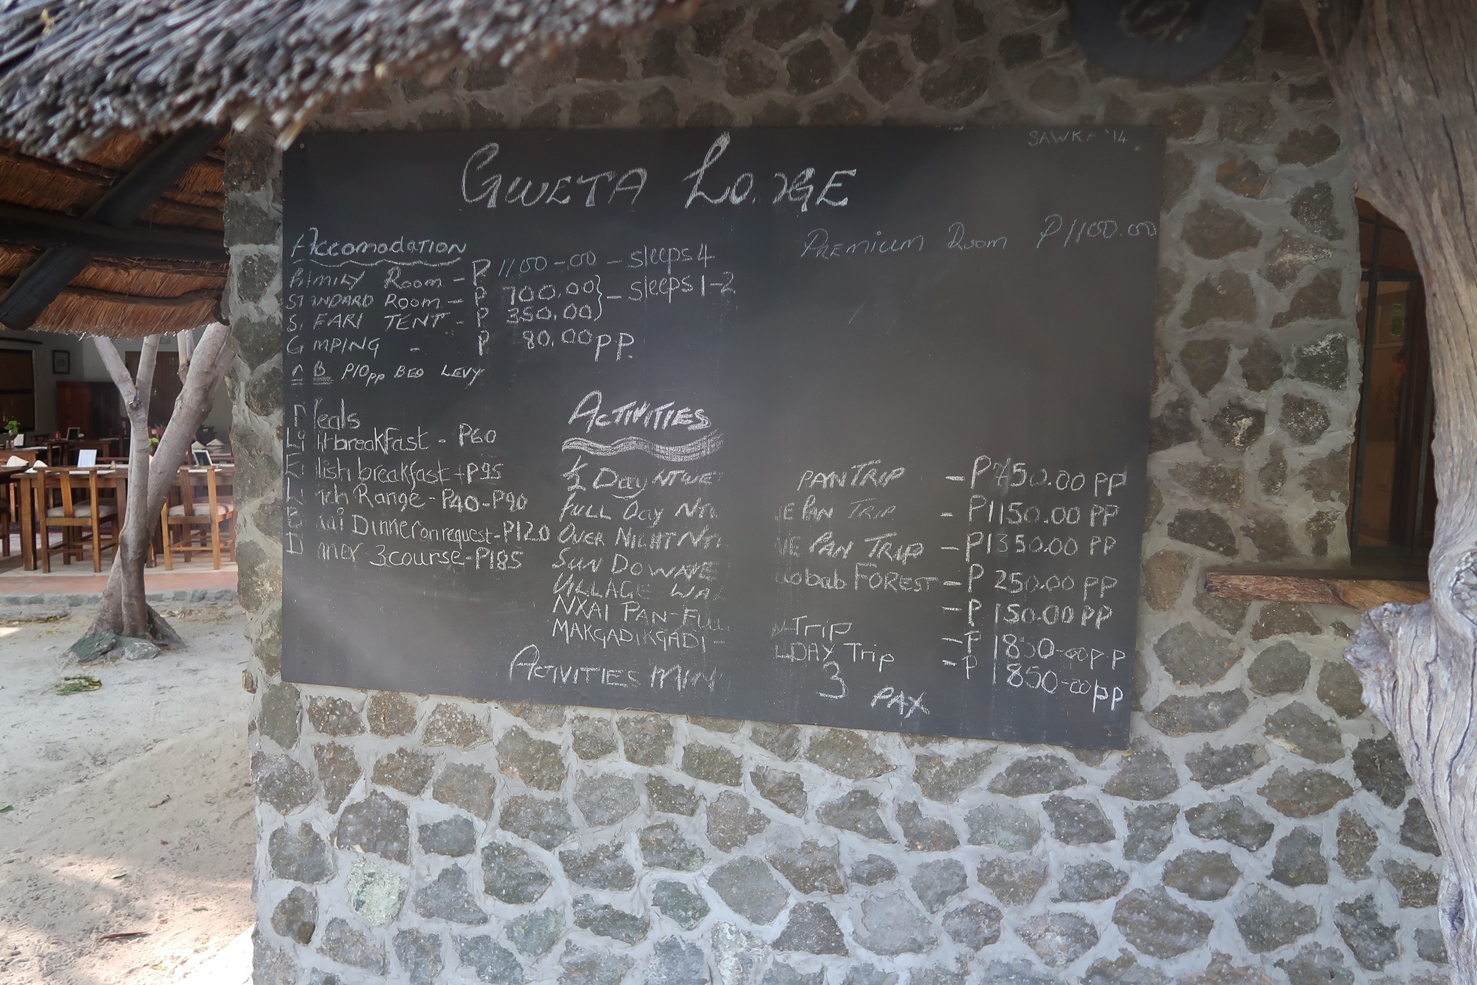 SAWKA '14
GWETA LODGE
Accomodation
FAMILY ROOM - P 1100-00 - sleeps 4
PREMIUM ROOM P1100.00
STANDARD ROOM - P 700.00 } - sleeps 1-2
S FARI TENT - P 350.00 }
C MPING - P 80.00 pp.
N B P10pp BED LEVY
Meals
Lig ht breakfast - P60
E lish breakfast - P95
L nch Range - P40-P90
B Dinner on request - P120
D nner - 3 course - P185
ACTIVITIES
½ Day NTWE PAN TRIP - P750.00 PP
FULL DAY NT E PAN TRIP - P1150.00 PP
OVER NIGHT NT WE PAN TRIP - P1350.00 PP
SUN DOWNE aobab FOREST - P 250.00 PP
VILLAGE WAL - P 150.00 PP
NXAI PAN-FULL Trip - P 1850-00 PP
MAKGADIKGADI - LDAY Trip - P 1850-00 pp
ACTIVITIES MIN 3 PAX